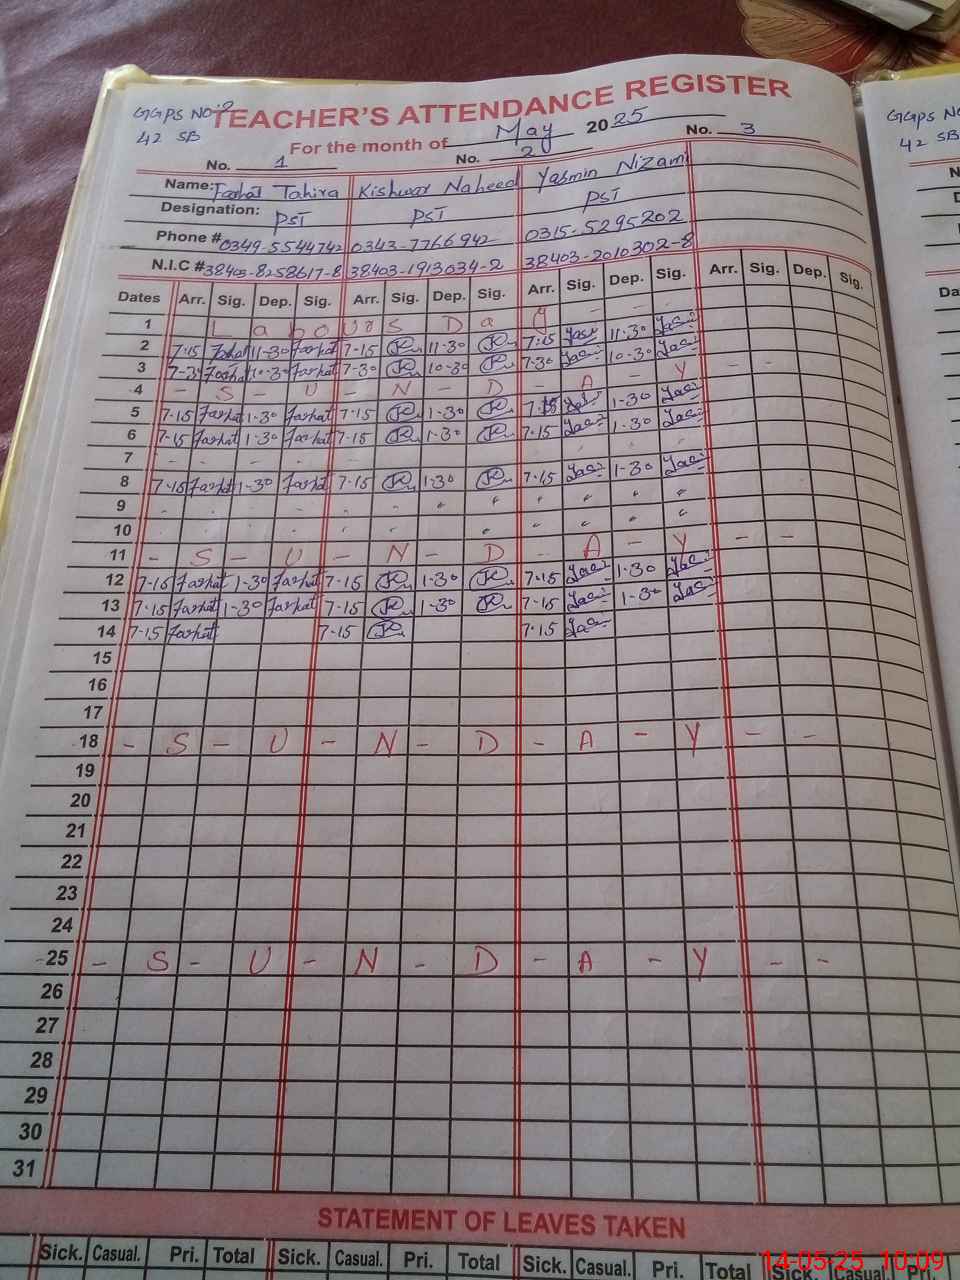 GGPS NO:2
42 SB
TEACHER'S ATTENDANCE REGISTER
For the month of May 2025
No. 1 No. 2 No. 3
Name: Farhat Tahira Kishwar Naheed Yasmin Nizami
Designation: PST PST PST
Phone # 0349-5544742 0343-7766942 0315-5295202
N.I.C # 38403-8258617-8 38403-1913034-2 38403-2010302-8
Dates Arr. Sig. Dep. Sig. Arr. Sig. Dep. Sig. Arr. Sig. Dep. Sig. Arr. Sig. Dep. Sig.
1 Labours Day
2 7-15 Farhat 11-30 Farhat 7-15 11-30 7-15 Yas 11-30 Yas
3 7-30 Farhat 10-30 Farhat 7-30 10-30 7-30 Yas 10-30 Yas
4 - S - U - N - D - A - Y - -
5 7-15 Farhat 1-30 Farhat 7-15 1-30 7-15 Yas 1-30 Yas
6 7-15 Farhat 1-30 Farhat 7-15 1-30 7-15 Yas 1-30 Yas
7
8 7-15 Farhat 1-30 Farhat 7-15 1-30 7-15 Yas 1-30 Yas
9
10
11 - S - U - N - D - A - Y - -
12 7-15 Farhat 1-30 Farhat 7-15 1-30 7-15 Yas 1-30 Yas
13 7-15 Farhat 1-30 Farhat 7-15 1-30 7-15 Yas 1-30 Yas
14 7-15 Farhat 7-15 7-15 Yas
15
16
17
18 - S - U - N - D - A - Y - -
19
20
21
22
23
24
25 - S - U - N - D - A - Y - -
26
27
28
29
30
31
STATEMENT OF LEAVES TAKEN
Sick. Casual. Pri. Total Sick. Casual. Pri. Total Sick. Casual. Pri. Total Sick. Casual. Pri.
14-05-25 10:09
GGPS NO
42 SB